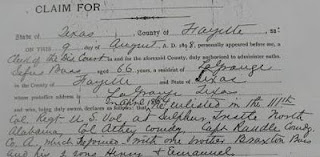 CLAIM FOR
State of Texas, County of Fayette
ON THIS 9 day of August, A. D. 1898, personally appeared before me, a
Clerk of the Dis Court and for the aforesaid County, duly authorized to administer oaths
Bass, aged 66 years, a resident of La Grange
Fayette State of Texas
whose postoffice address is La Grange Texas
and who, being duly sworn, declares as follows: that he enlisted in the 111th
Col Regt U. S. Vol at Sulphur Trestle North
Alabama, Col Athey comdg, Capt Randle Comdg.
Co. A, which rejoined with one brother Braxton Bass
and his 2 sons Henry & Emanuel